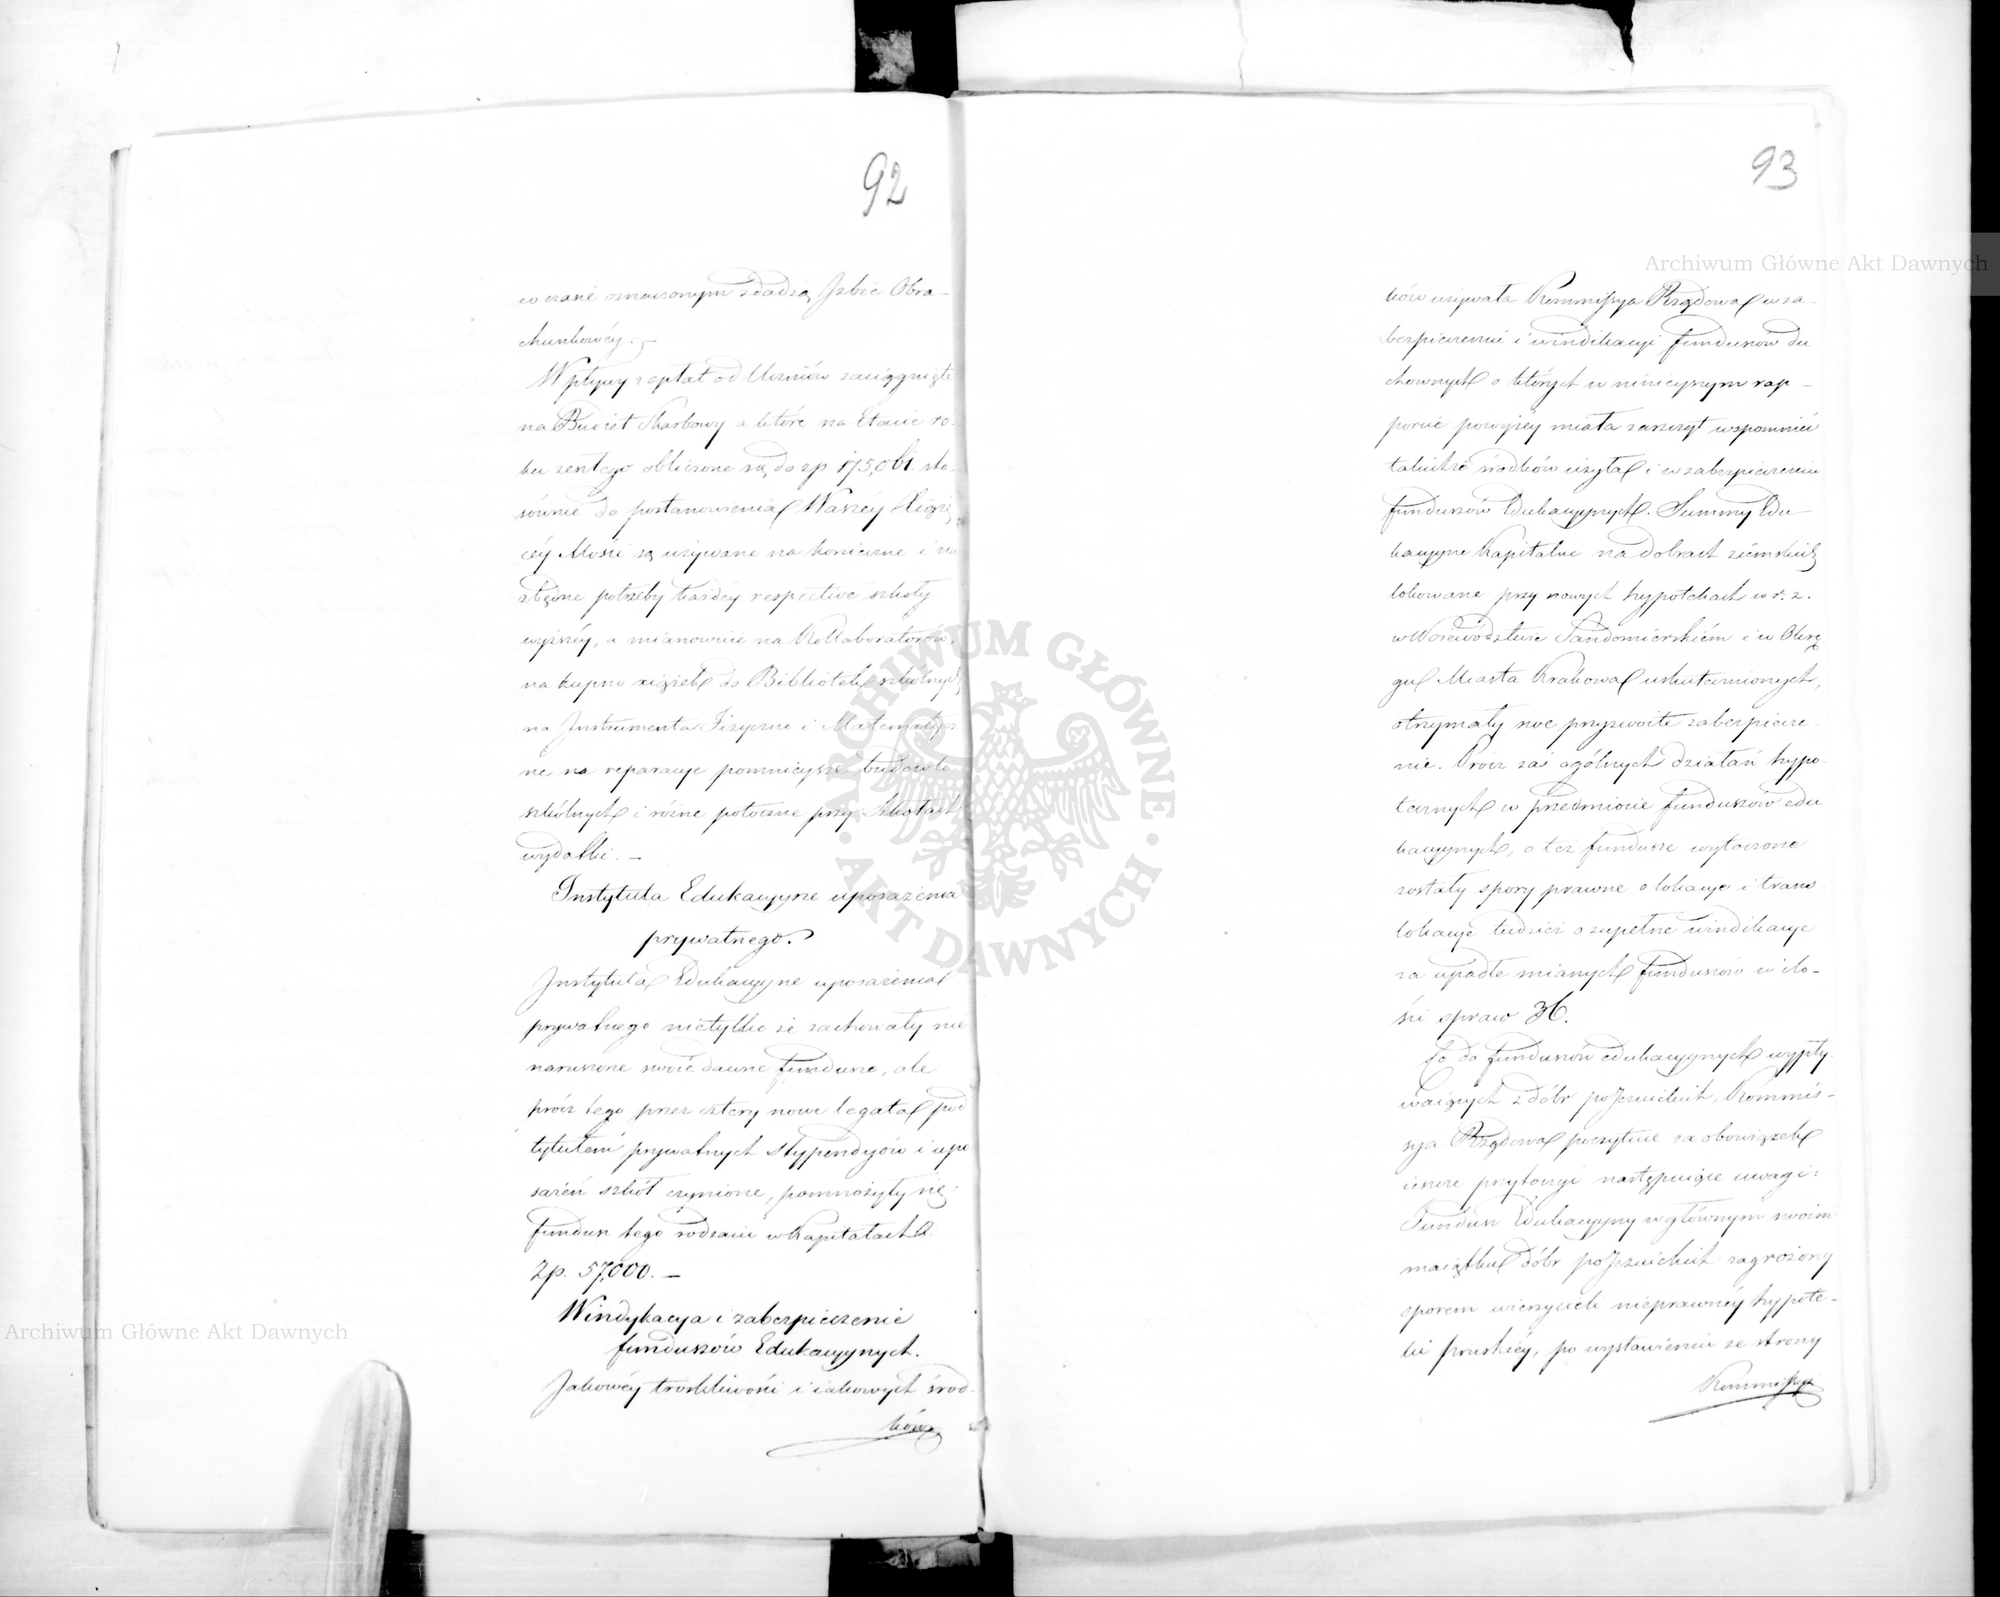 92
w czasie oznaczonym zdadzą Jzbie Obra-
chunkowéy. –
Wpływy z opłat od Uczniów zaciągnięte
na Budżet Skarbowy a które na Etacie ro-
ku zeszłego obliczone są do zp. 175,061. sto-
sownie do postanowienia Waszéy Xiążę
céy Mości są używane na konieczne i na
glące potrzeby każdéy respective szkoły
wyższéy, a mianowicie na Kollaboratorów,
na kupno xiążek do Bibliotek szkólnych,
na Jnstrumenta Fizyczne i Matematycz
ne na reparacye pomnieysze budowli
szkólnych i różne potoczne przy Szkołach
wydatki. –
Instytuta Edukacyyne uposażenia
prywatnego.
Jnstytuta Edukacyyne uposażenia
prywatnego nietylko że zachowały nie
naruszone swoie dawne fundusze, ale
prócz tego przez cztery nowe legata pod
tytułem prywatnych stypendyów i upo
sażeń szkół czynione, pomnożyły się:
fundusz tego rodzaiu w kapitałach o
Zp. 57,000. –
Windykacya i zabezpieczenie
funduszów Edukacyynych.
Jakowéy troskliwości i iakowych środ-
ków
93
ków używała Kommissya Rządowa w za-
bezpieczeniu i windikacyi funduszów du
chownych o których w ninieyszym rap-
porcie powyżéy miała zaszczyt wspomnieć
takichże środków użyła i w zabezpieczeniu
funduszów Edukacyynych. Summy Edu-
kacyyne kapitalne na dobrach ziemskich
lokowane przy nowych hypotekach w r. z.
w Woiewództwie Sandomierskiém i w Okrę
gu Miasta Krakowa uskutecznionych,
otrzymały swe przyzwoite zabezpiecze-
nie. Prócz zaś ogólnych działań hypo-
tecznych w przedmiocie funduszów edu
kacyynych, o też fundusze wytoczone
zostały spory prawne o lokacye i trans-
lokacye tudzież o zupełne windikacye
za upadłe mianych funduszów w ilo-
ści spraw 36.
Co do funduszów edukacyynych wypły-
waiących z dóbr poJezuickich, Kommis-
sya Rządowa poczytuie za obowiązek
ieszcze przytoczyć następuiące uwagi:
Fundusz Edukacyyny w głównym swoim
maiątku dóbr poJezuickich zagrożony
sporem wierzycieli nieprawnéy hypote-
ki pruskiéy, po wystawieniu ze strony
Kommissyi
Archiwum Główne Akt Dawnych
Archiwum Główne Akt Dawnych
ARCHIWUM GŁÓWNE · AKT DAWNYCH ·